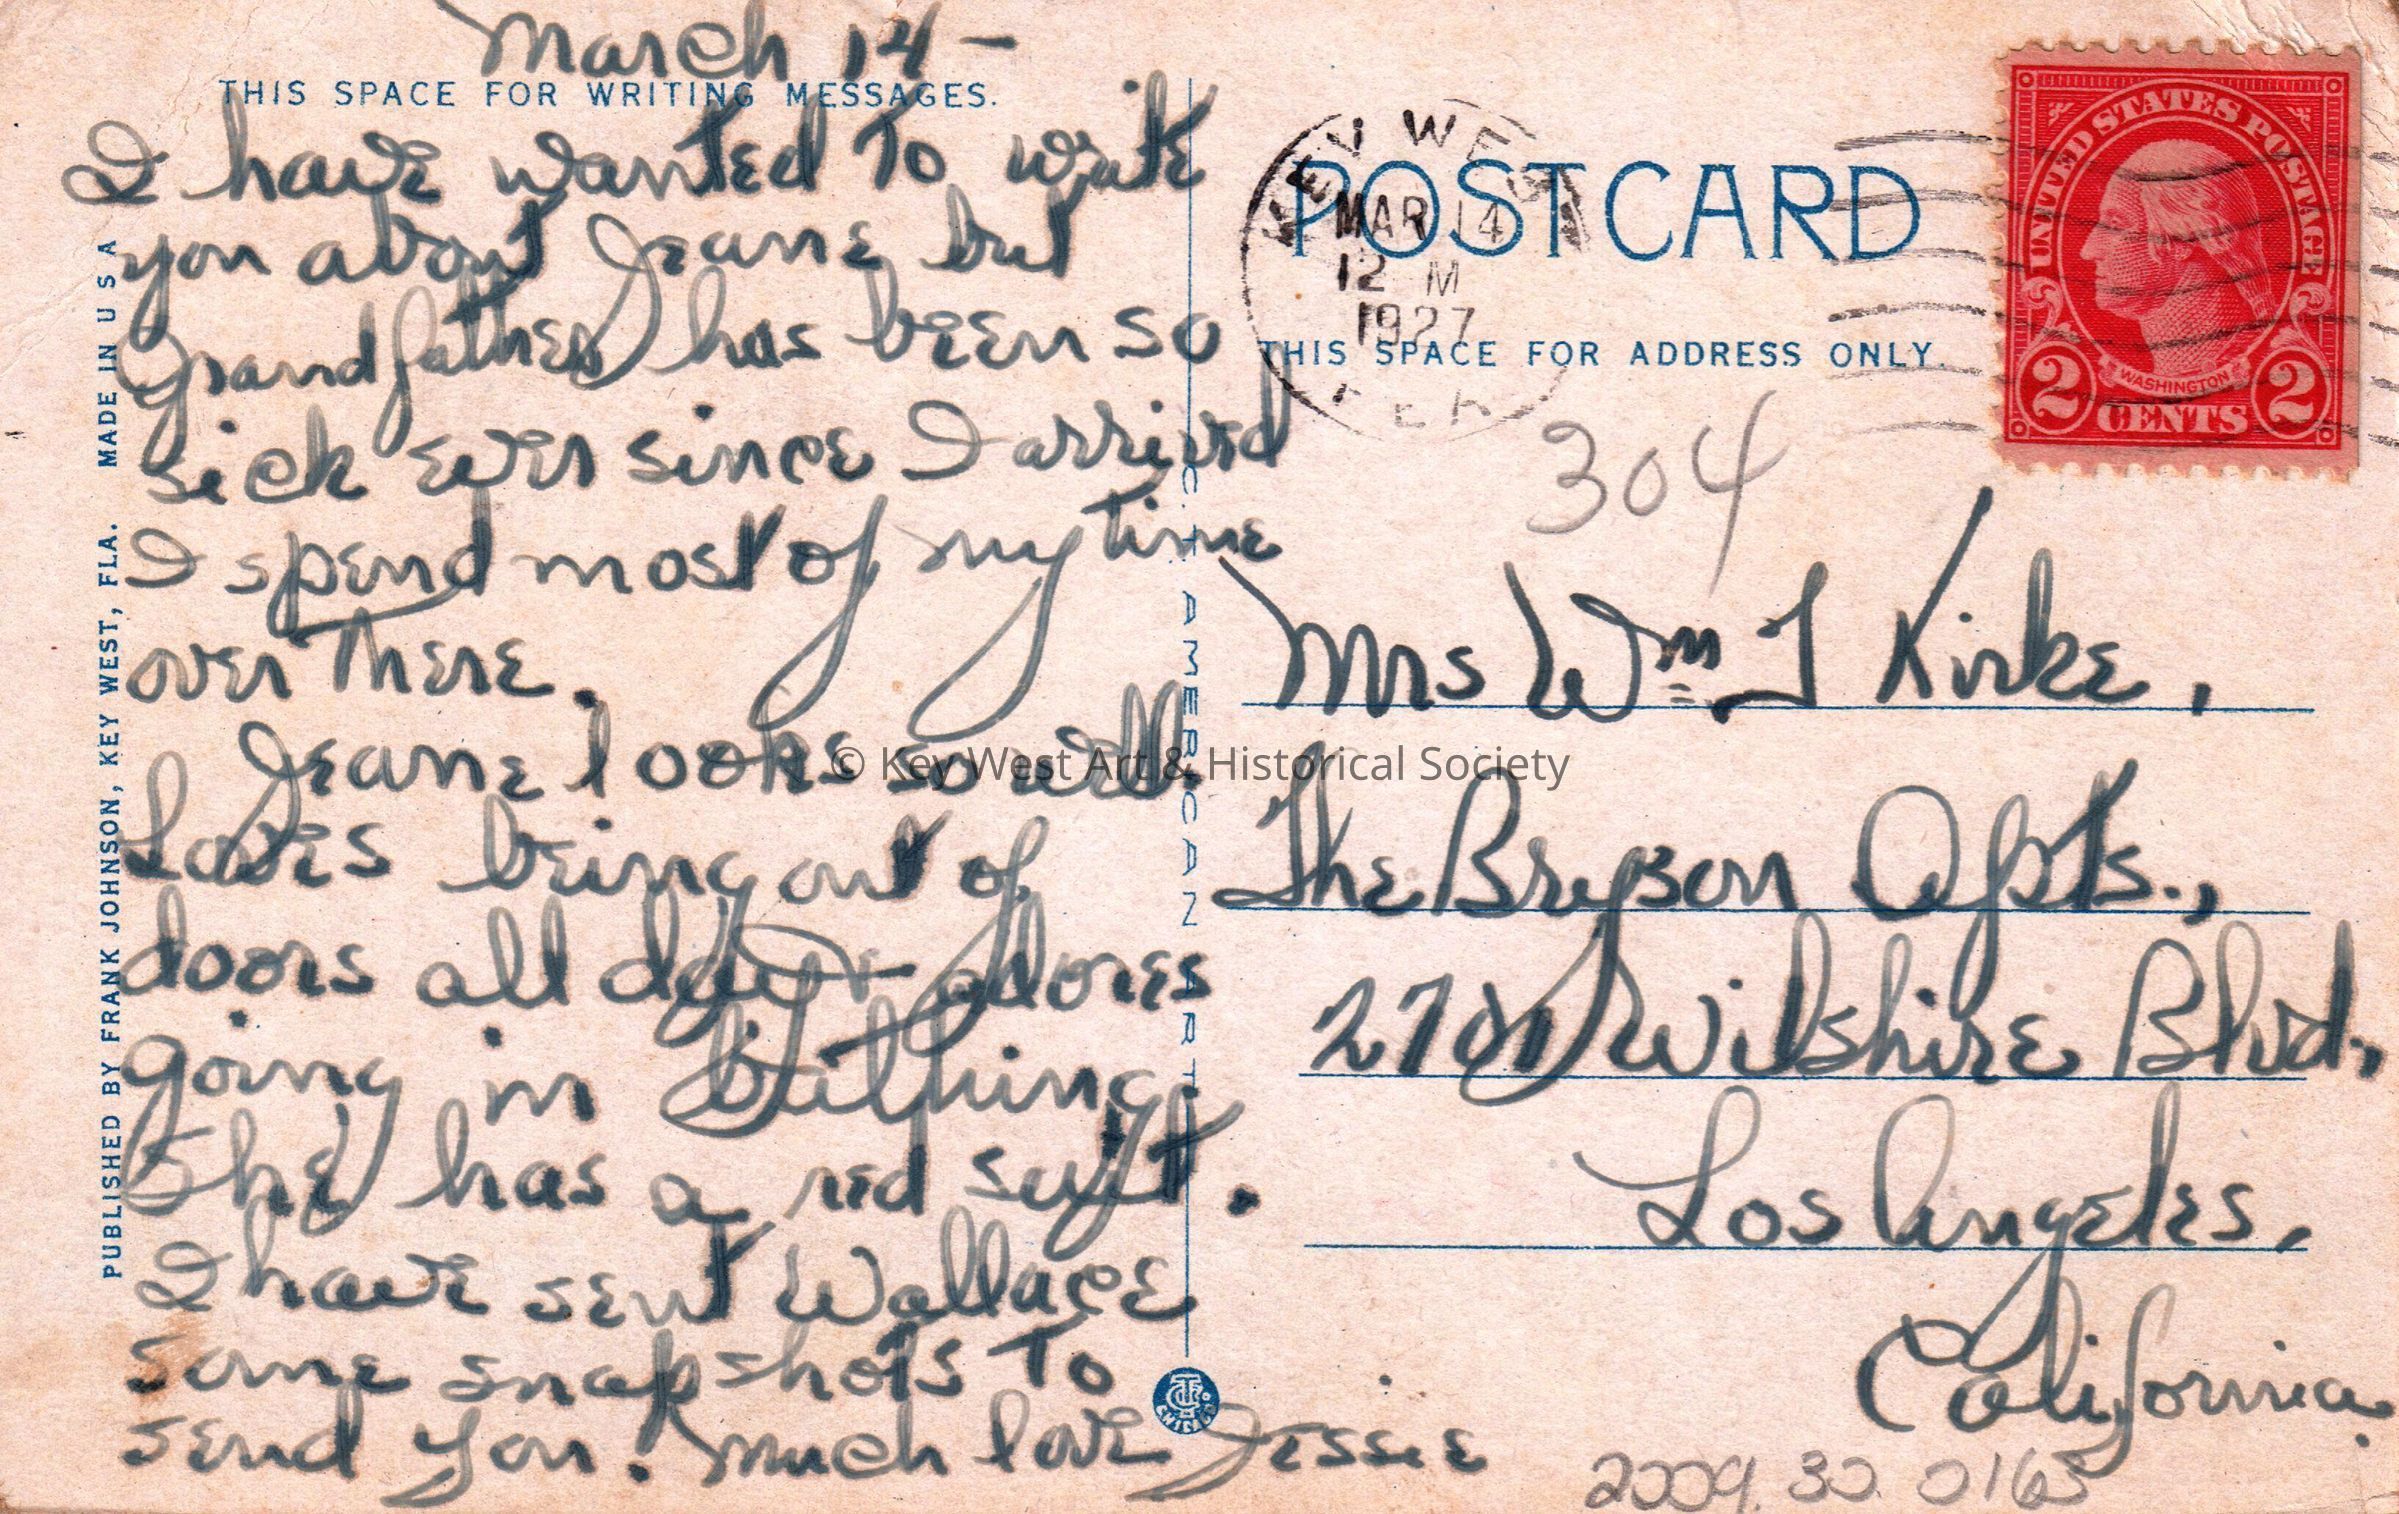 March 14 -
THIS SPACE FOR WRITING MESSAGES.
I have wanted to write
you about Jeane but
Grandfather has been so
sick ever since I arrived
I spend most of my time
over there.
Jeane looks so well.
Loves being out of
doors all day + adores
going in bathing.
She has a red suit.
I have sent Wallace
some snapshots to
send you. Much love Jessie
PUBLISHED BY FRANK JOHNSON, KEY WEST, FLA. MADE IN U S A
C. T. AMERICAN ART
CHICAGO
KEY WEST
MAR 14
12 M
1927
FLA
POST CARD
THIS SPACE FOR ADDRESS ONLY.
UNITED STATES POSTAGE
WASHINGTON
2 CENTS 2
304
Mrs Wm J Kirke,
The Bryson Apts.,
2701 Wilshire Blvd.,
Los Angeles,
California.
2009.30.0165
© Key West Art & Historical Society